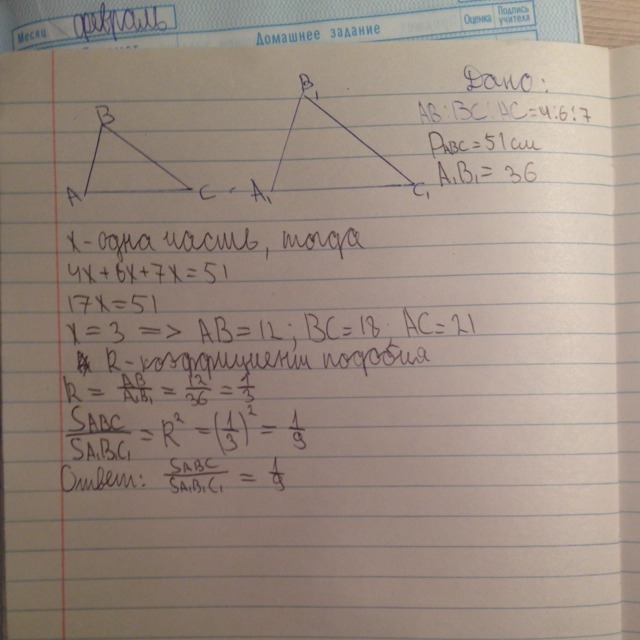 Месяц февраль
Домашнее задание
Оценка
Подпись учителя
Дано:
AB:BC:AC=4:6:7
PABC=51 см
A₁B₁=36
B
A
C
B₁
A₁
C₁
x-одна часть, тогда
4x+6x+7x=51
17x=51
x=3 => AB=12; BC=18; AC=21
R-коэффициент подобия
R = AB/A₁B₁ = 12/36 = 1/3
SABC/SA₁B₁C₁ = R² = (1/3)² = 1/9
Ответ: SABC/SA₁B₁C₁ = 1/9